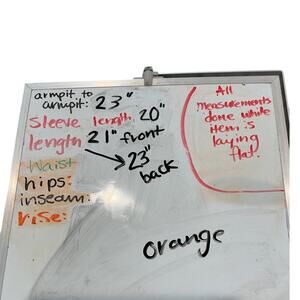 armpit to
armpit: 23"
Sleeve length 20"
length 21" front
23"
back
Waist
hips:
inseam:
rise:
All
measurements
done while
item is
laying
flat.
orange